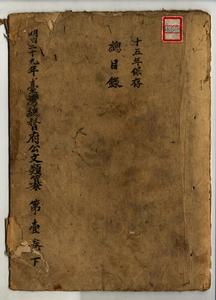 十五年保存
總目錄
明治二十九年臺灣總督府公文類纂 第壹卷 下